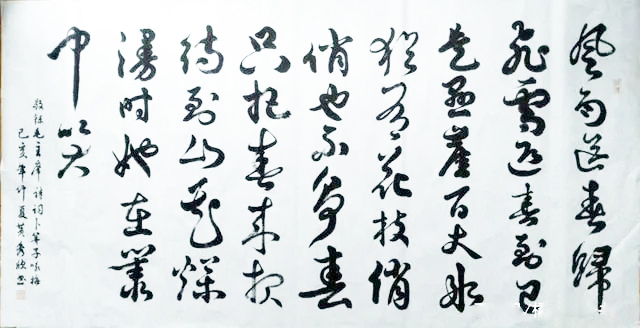 風雨送春歸
飛雪迎春到已
是懸崖百丈冰
猶有花枝俏
俏也不争春
只把春来报
待到山花爛
漫时她在叢
中笑
敬録毛主席诗词卜算子咏梅
己亥年仲夏黄秀书